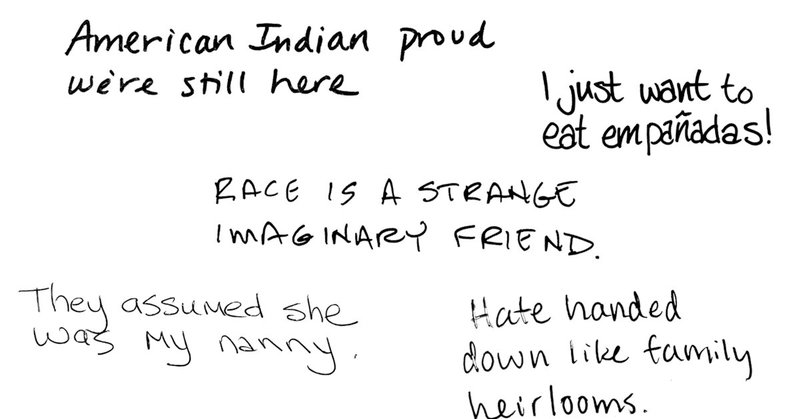 American Indian proud
we're still here
I just want to
eat empañadas!
RACE IS A STRANGE
IMAGINARY FRIEND.
They assumed she
was my nanny.
Hate handed
down like family
heirlooms.